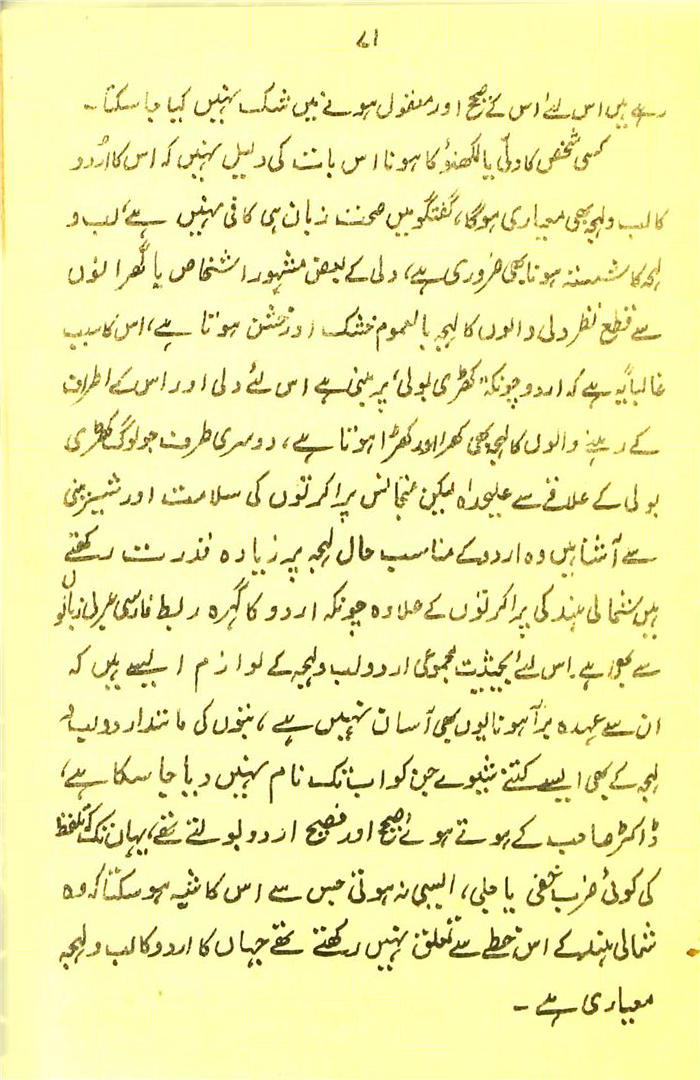 ۷۱
رہے ہیں اس لئے اس کے صحیح اور معقول ہونے میں شک نہیں کیا جا سکتا۔
کسی شخص کا دلّی یا لکھنؤ کا ہونا اس بات کی دلیل نہیں کہ اس کا اُردو
کا لب و لہجہ بھی معیاری ہوگا، گفتگو میں صحت زبان ہی کافی نہیں ہے، لب و
لہجہ کا شستہ ہونا بھی ضروری ہے، دلی کے بعض مشہور اشخاص یا گھرانوں
سے قطع نظر دلی والوں کا لہجہ بالعموم خشک اور خشن ہوتا ہے، اس کا سبب
غالباً یہ ہے کہ اردو چونکہ "کھڑی بولی" پر مبنی ہے اس لئے دلی اور اس کے اطراف
کے رہنے والوں کا لہجہ بھی کھرا اور کھڑا ہوتا ہے، دوسری طرف جو لوگ کھڑی
بولی کے علاقے سے علیحدہ لیکن متجانس پراکرتوں کی سلاست اور شیرینی
سے آشنا ہیں وہ اردو کے مناسب حال لہجہ پر زیادہ قدرت رکھتے
ہیں شمالی ہند کی پراکرتوں کے علاوہ چونکہ اردو کا گہرہ ربط فارسی عربی زبانوں
سے بھی رہا ہے۔ اس لئے بحیثیت مجموعی اردو لب و لہجہ کے لوازم ایسے ہیں کہ
ان سے عہدہ برآ ہونا یوں بھی آسان نہیں ہے، بتوں کی مانند اردو لب و
لہجہ کے بھی ایسے کتنے شیوے جن کو اب تک نام نہیں دیا جا سکا ہے،
ڈاکٹر صاحب کے ہوتے ہوئے صحیح اور فصیح اردو بولتے تھے، یہاں تک کہ تلفظ
کی کوئی ضرب خفی یا جلی، ایسی نہ ہوتی جس سے اس کا شبہ ہو سکتا کہ وہ
شمالی ہند کے اس خطے سے تعلق نہیں رکھتے تھے جہاں کا اردو کا لب و لہجہ
معیاری ہے۔